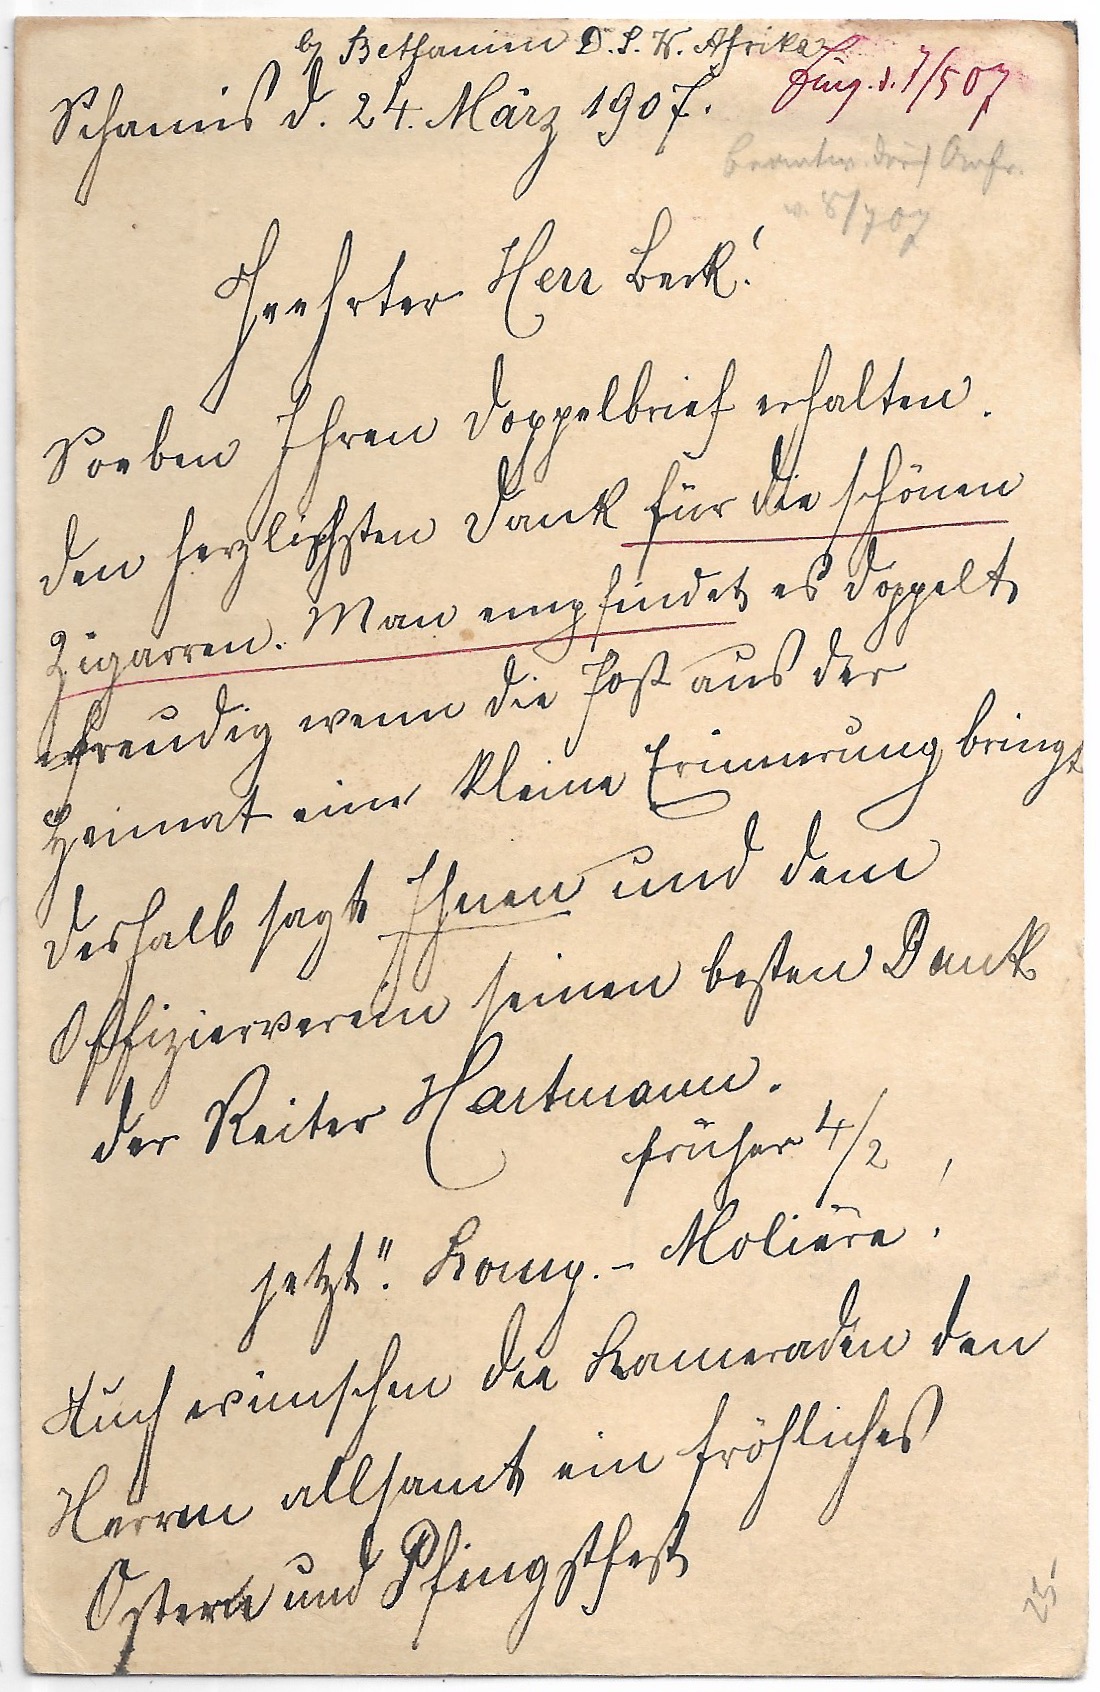 b/ Bethanien D. S. W. Afrika
Eing. d. 7/5 07
Schamis d. 24. März 1907.
beantw. durch
v. 8/7 07
Geehrter Herr Beck!
Soeben Ihren Doppelbrief erhalten.
den herzlichsten Dank für die schönen
Zigarren. Man empfindet es doppelt
freudig wenn die Post aus der
Heimat eine kleine Erinnerung bringt
deshalb sagt Ihnen und dem
Offizierverein seinen besten Dank
der Reiter Hartmann.
früher 4/2
jetzt ". Komp. – Molière!
Auch wünschen die Kameraden den
Herrn allsamt ein fröhliches
Ostern und Pfingstfest